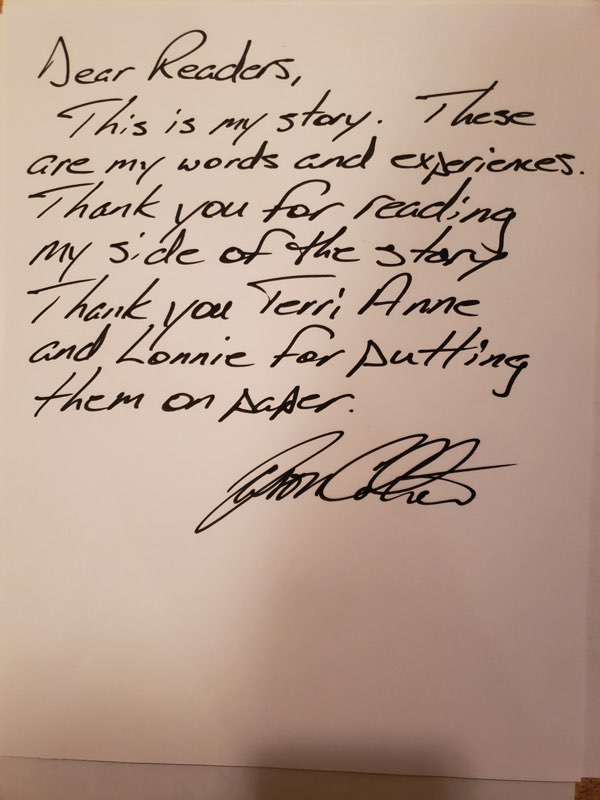 Dear Readers,
This is my story. These
are my words and experiences.
Thank you for reading
my side of the story
Thank you Terri Anne
and Lonnie for putting
them on paper.